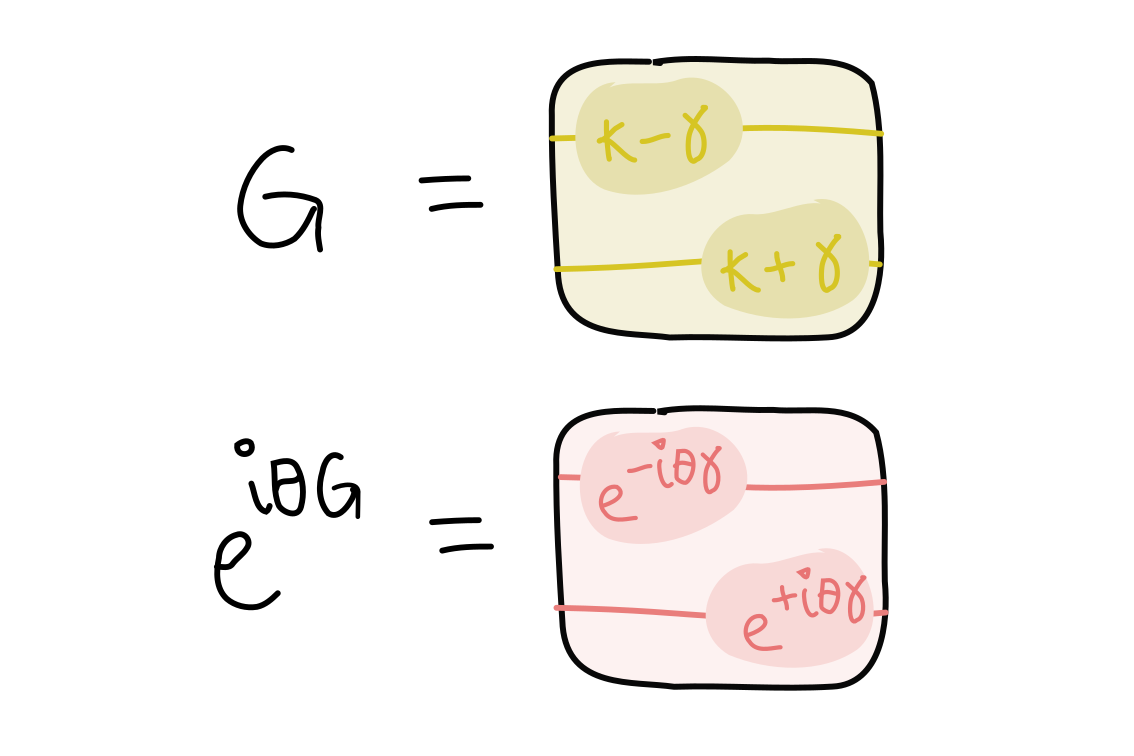 G = κ-γ
κ+γ
e^{iθG} = e^{-iθγ}
e^{+iθγ}